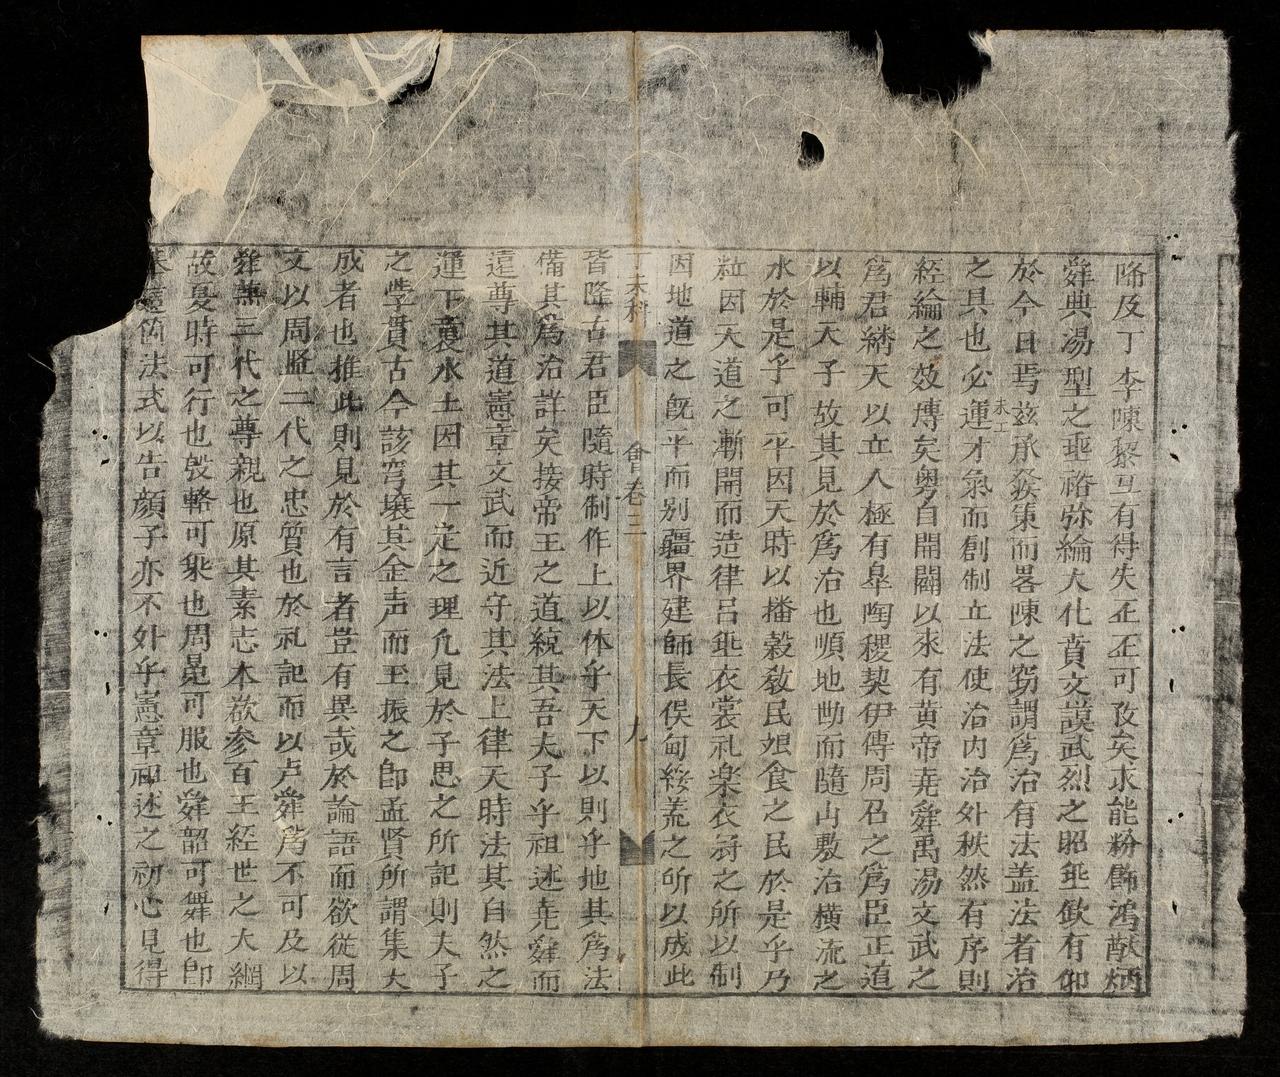 降及丁李陳黎互有得失正正可攷矣求能粉飾鴻猷炳
舜典湯型之垂裕弥綸大化賁文謨武烈之昭垂欽有仰
於今日焉玆承矦策而畧陳之窈謂為治有法盖法者治
未工
之具也必運才氣而創制立法使治内治外秩然有序則
經綸之效溥矣粤自開闢以來有黄帝堯舜禹湯文武之
為君繼天以立人極有皐陶稷契伊傅周召之為臣正道
以輔天子故其見於為治也順地勢而隨山敷治橫流之
水於是乎可平因天時以播穀敎民艰食之民於是乎乃
粒因天道之漸開而造律吕垂衣裳礼楽衣冠之所以制
因地道之既平而别疆界建師長侯甸綏荒之所以成此
丁未科 會卷三 九
皆隆古君臣隨時制作上以体乎天下以則乎地其為法
備其為治詳矣接帝王之道統其吾夫子乎祖述堯舜而
遠尊其道憲章文武而近守其法上律天時法其自然之
運下襲水土因其一定之理凢見於子思之所記則夫子
之學貫古今該穹壤其金声而玉振之卽孟賢所謂集大
成者也推此則見於有言者豈有異㦲於論語而欲從周
文以周監二代之忠質也於礼記而以卢舜為不可及以
舜無三代之尊親也原其素志本欲参百王經世之大綱
故夏時可行也殷輅可乘也周冕可服也舜韶可舞也卽
這箇法式以告顔子亦不外乎憲章祖述之初心見得